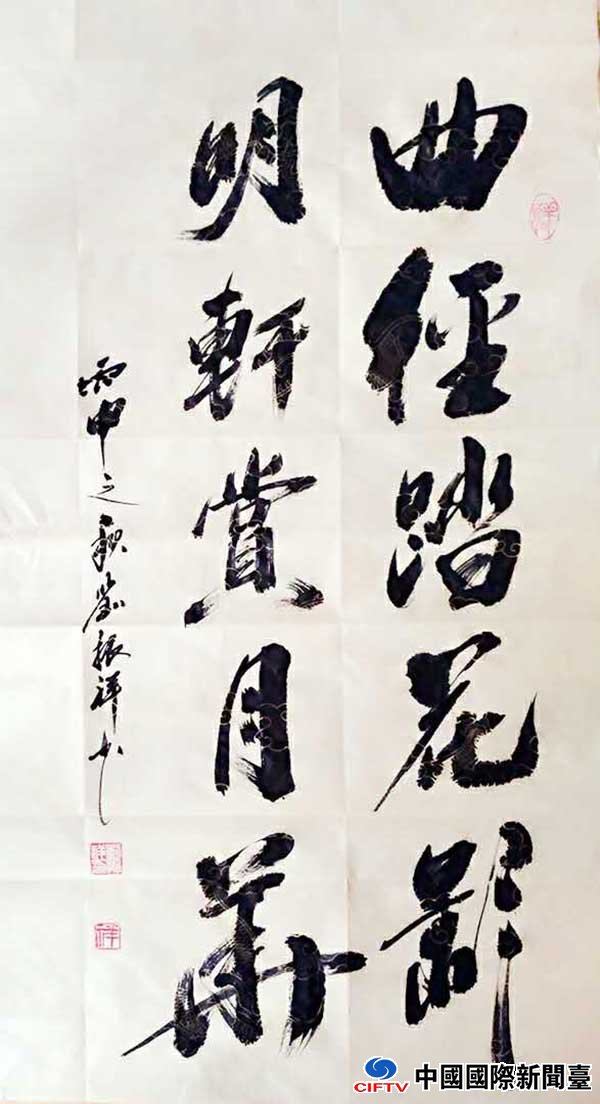 曲徑踏花影
明軒賞月華
丙申之秋劉振祥书
祥
CIFTV 中國國際新聞臺